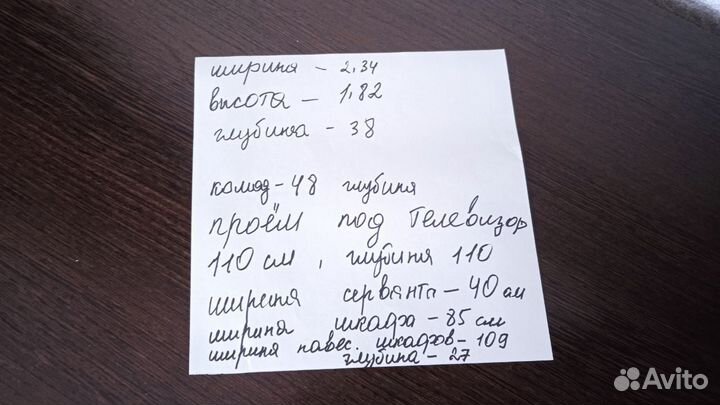 ширина - 2,34
высота - 1,82
глубина - 38
комод - 48 глубина
проём под телевизор
110 см, глубина 110
ширина серванта - 40 см
ширина шкафа - 85 см
ширина навес. шкафов - 109
глубина - 27
Avito